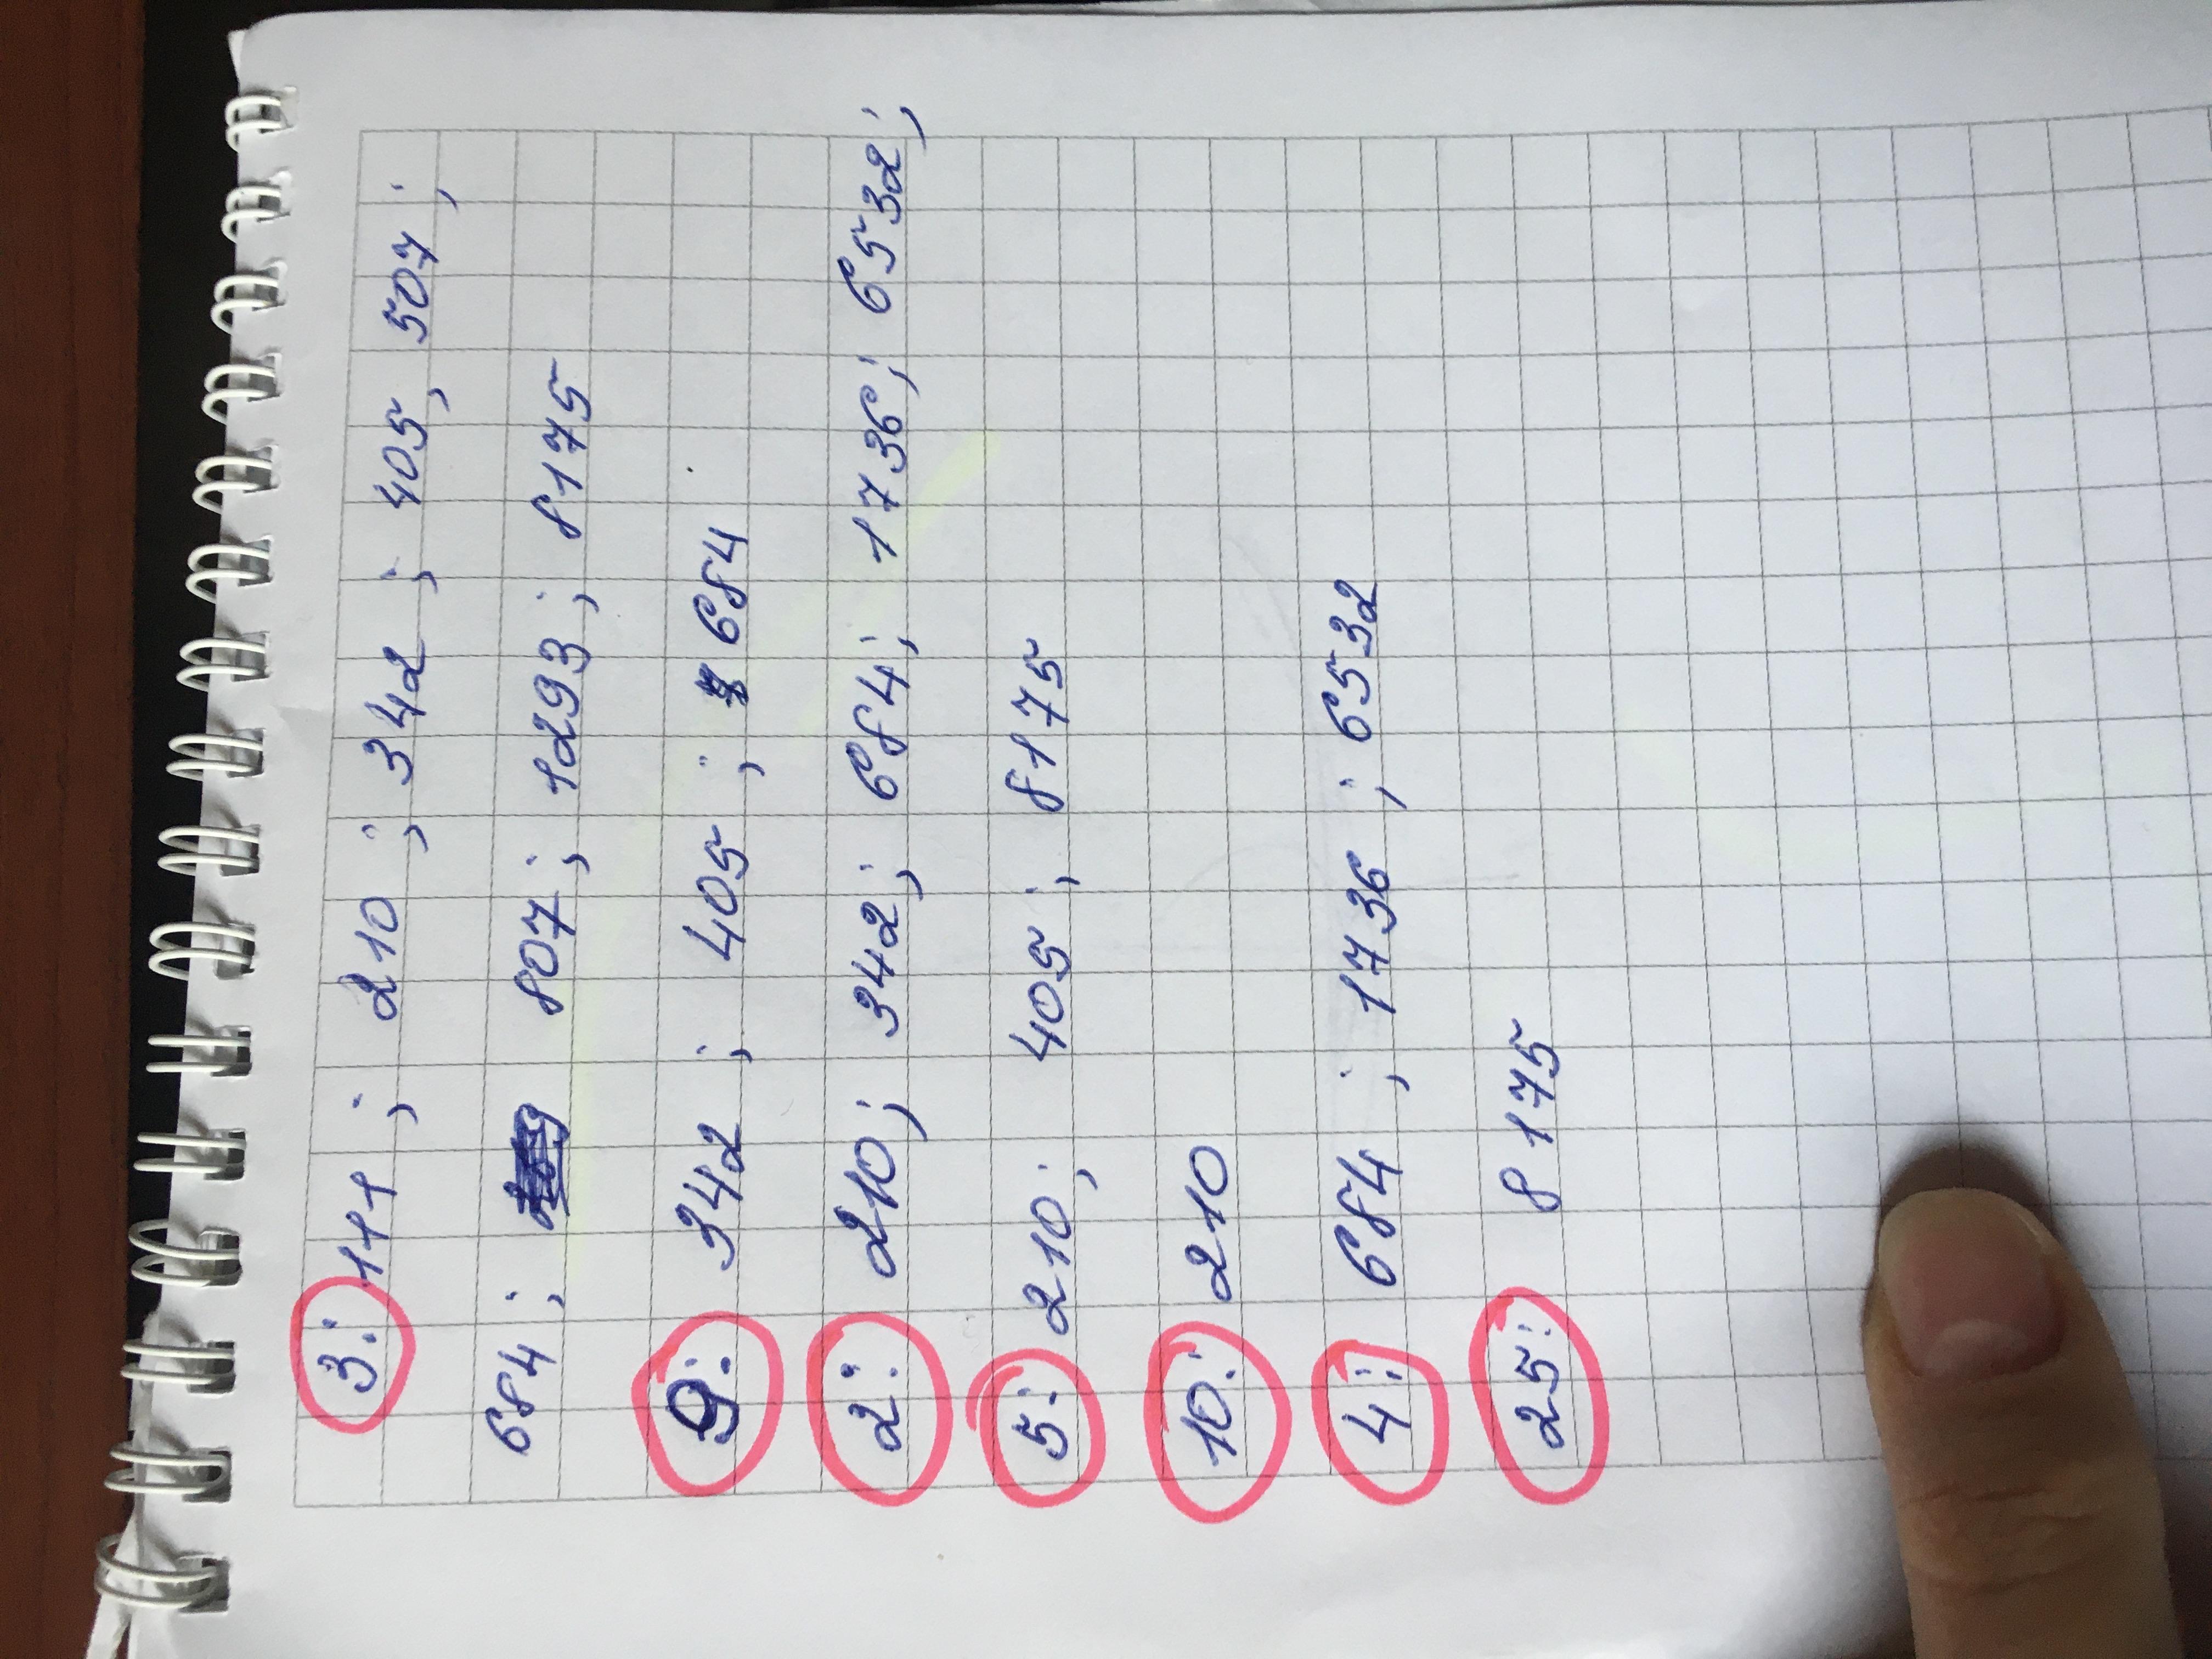 3: 111 ; 210 ; 342 ; 405, 507 ;
684 ; 807 ; 1293 ; 8175
9: 342 ; 405 ; 684
2: 210; 342; 684; 1736; 6532;
5: 210; 405; 8175
10: 210
4: 684 ; 1736 ; 6532
25: 8175